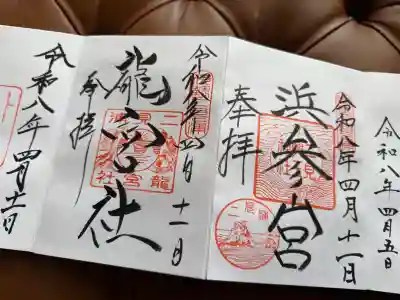 令和八年四月五日
令和八年四月十一日
浜参宮
奉拝
令和八年四月十一日
龍宮社
奉拝
令和八年四月十一日